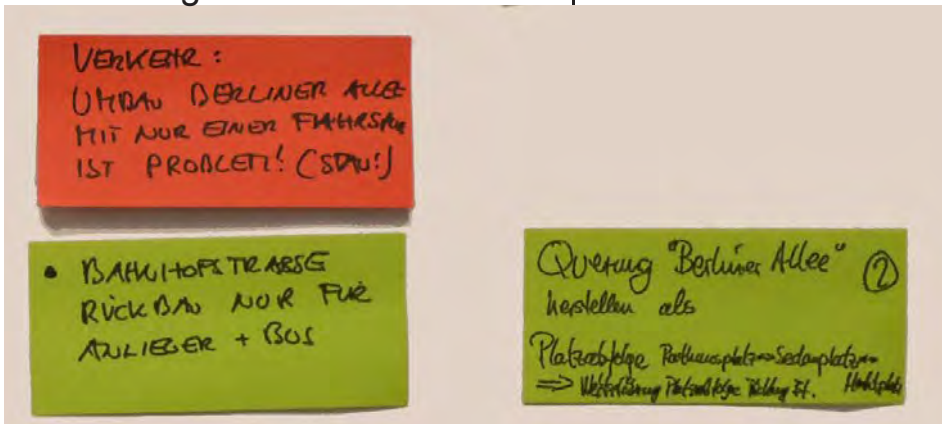 VERKEHR:
UMBAU BERLINER ALLEE
MIT NUR EINER FAHRSPUR
IST PROBLEM! (STAU!)
• BAHNHOFSTRASSE
RÜCKBAU NUR FÜR
ANLIEGER + BUS
Querung "Berliner Allee" ②
herstellen als
Platzabfolge Rathausplatz Sedanplatz
⇒ Weiterführung Platzabfolge